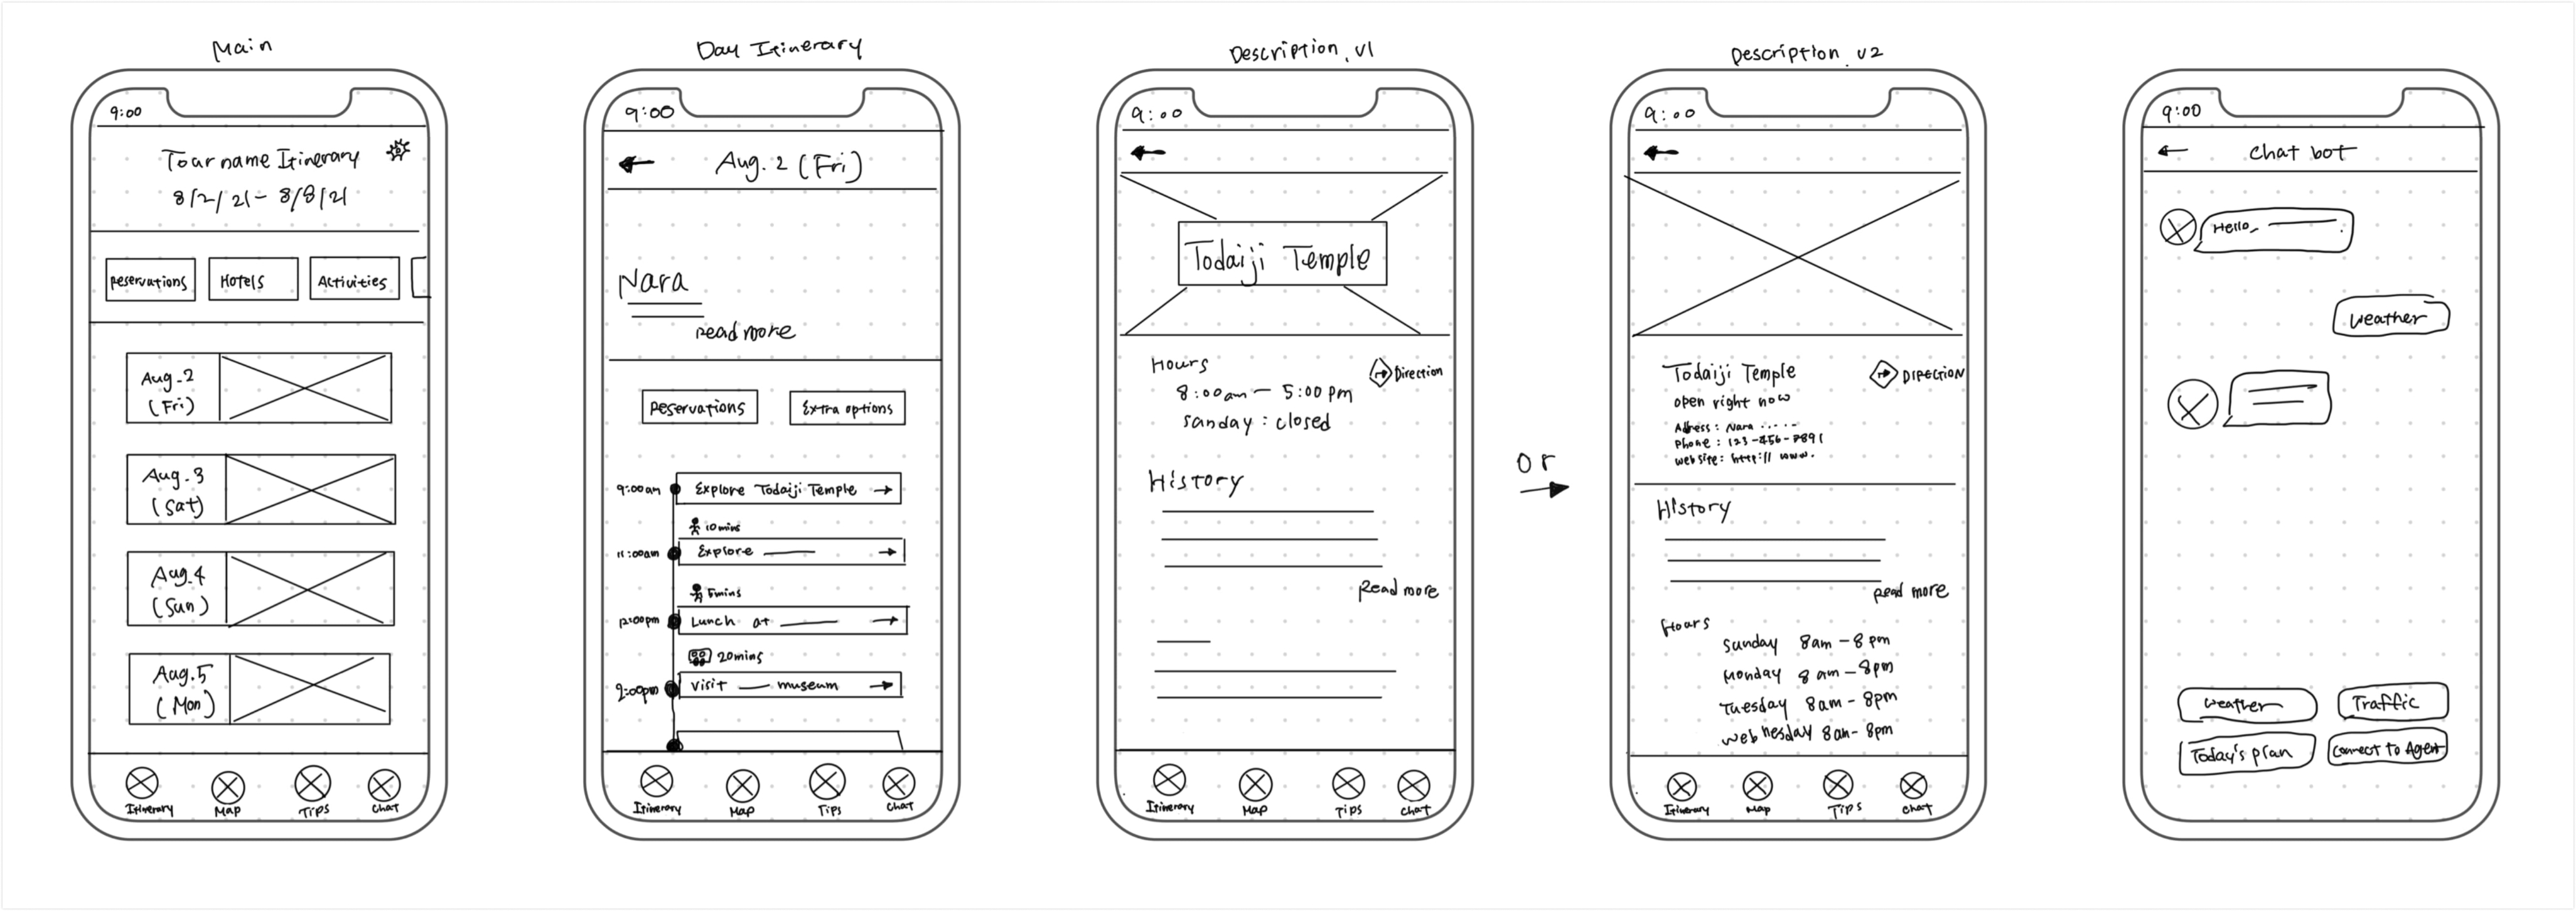 Main
9:00
Tour name Itinerary
8/2/21 - 8/8/21
Reservations
Hotels
Activities
Aug. 2
(Fri)
Aug. 3
(Sat)
Aug. 4
(Sun)
Aug. 5
(Mon)
Itinerary
Map
Tips
Chat
Day Itinerary
9:00
Aug. 2 (Fri)
Nara
Read more
Reservations
Extra options
9:00am Explore Todaiji Temple →
10mins
11:00am Explore →
5mins
12:00pm Lunch at →
20mins
2:00pm Visit museum →
Itinerary
Map
Tips
Chat
Description. v1
9:00
Todaiji Temple
Hours
Direction
8:00am - 5:00pm
Sanday : closed
History
Read more
Itinerary
Map
Tips
Chat
or
Description. v2
9:00
Todaiji Temple
DIRECTION
open right now
Address : Nara .....
Phone : 123-456-7891
Website : http:// www.
History
Read more
Hours
Sunday 8am - 8pm
Monday 8am - 8pm
Tuesday 8am - 8pm
Wednesday 8am - 8pm
Itinerary
Map
Tips
Chat
9:00
Chat bot
Hello,
Weather
Weather
Traffic
Today's plan
Connect to Agent